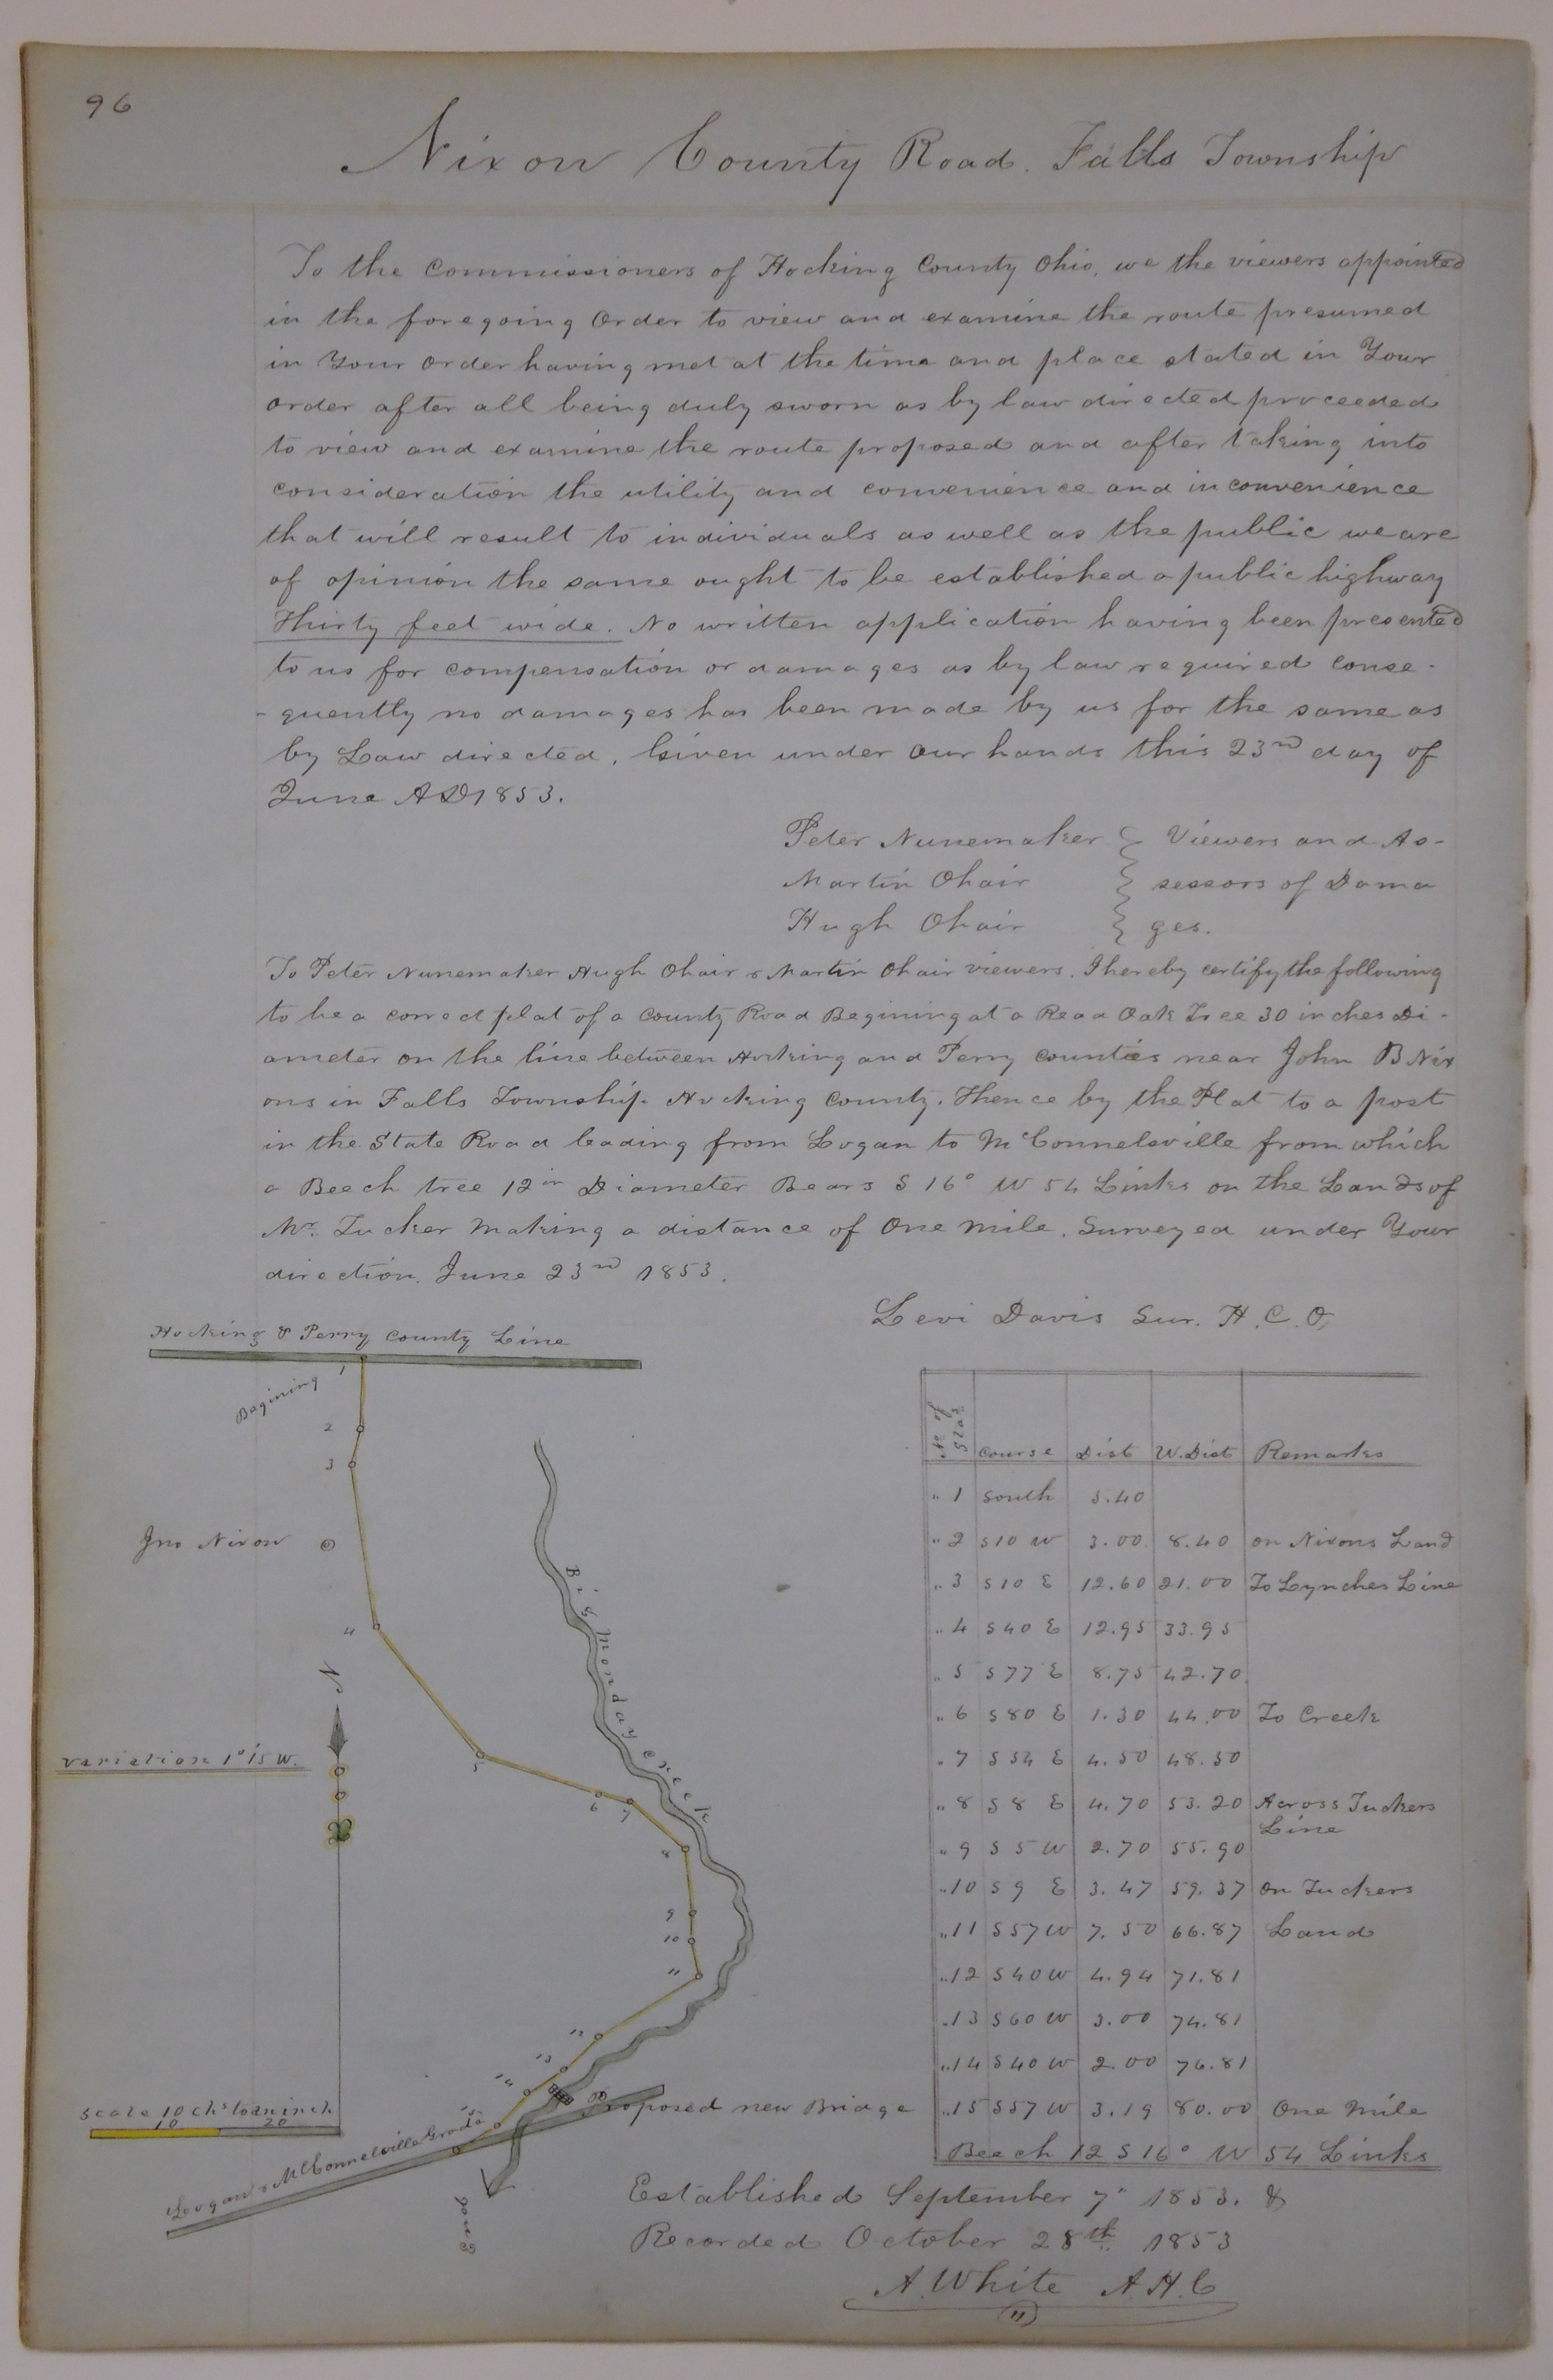 96
Nixon County Road. Falls Township
To the Commissioners of Hocking County Ohio, we the viewers appointed
in the foregoing Order to view and examine the route presumed
in Your order having met at the time and place stated in Your
order after all being duly sworn as by law directed proceeded
to view and examine the route proposed and after taking into
consideration the utility and convenience and inconvenience
that will result to individuals as well as the public we are
of opinion the same ought to be established a public highway
Thirty feet wide. No written application having been presented
to us for compensation or damages as by law required conse-
-quently no damages has been made by us for the same as
by Law directed, Given under our hands this 23nd day of
June AD 1853.
Peter Nunemaker } Viewers and As-
Martin Ohair } sessors of Dama
Hugh Ohair } ges.
To Peter Nunemaker Hugh Ohair & Martin Ohair viewers. I hereby certify the following
to be a correct plat of a County Road Begining at a Read Oak Tree 30 inches Di-
ameter on the line between Hocking and Perry counties near John B Nix
ons in Falls Township Hocking County. Thence by the Plat to a post
in the State Road leading from Logan to McConnelsville from which
a Beech tree 12 in Diameter Bears S 16° W 54 Links on the Lands of
Mr. Tucker Making a distance of One Mile. Surveyed under Your
direction. June 23nd 1853.
Levi Davis Sur. H. C. O.
Hocking & Perry County Line
Begining
1
2
3
Jno Nixon
4
N
variation 1° 15 W.
5
6
7
8
9
10
11
12
13
14
15
Big Monday Creek
Proposed new Bridge
scale 10 chs to an inch
10 20
Logan & McConnelsville Grade
No. of Stat. Course Dist W. Dist Remarks
" 1 South 5.40
" 2 S10 W 3.00 8.40 on Nixons Land
" 3 S10 E 12.60 21.00 To Lynches Line
" 4 S40 E 12.95 33.95
" 5 S77 E 8.75 42.70
" 6 S80 E 1.30 44.00 To Creek
" 7 S54 E 4.50 48.50
" 8 S8 E 4.70 53.20 Across Tuckers
Line
" 9 S5 W 2.70 55.90
" 10 S9 E 3.47 59.37 on Tuckers
" 11 S57 W 7.50 66.87 Land
" 12 S40 W 4.94 71.81
" 13 S60 W 3.00 74.81
" 14 S40 W 2.00 76.81
" 15 S57 W 3.19 80.00 One Mile
Beech 12 S 16° W 54 Links
Established September 7" 1853. &
Recorded October 28th 1853
A. White A. H. C